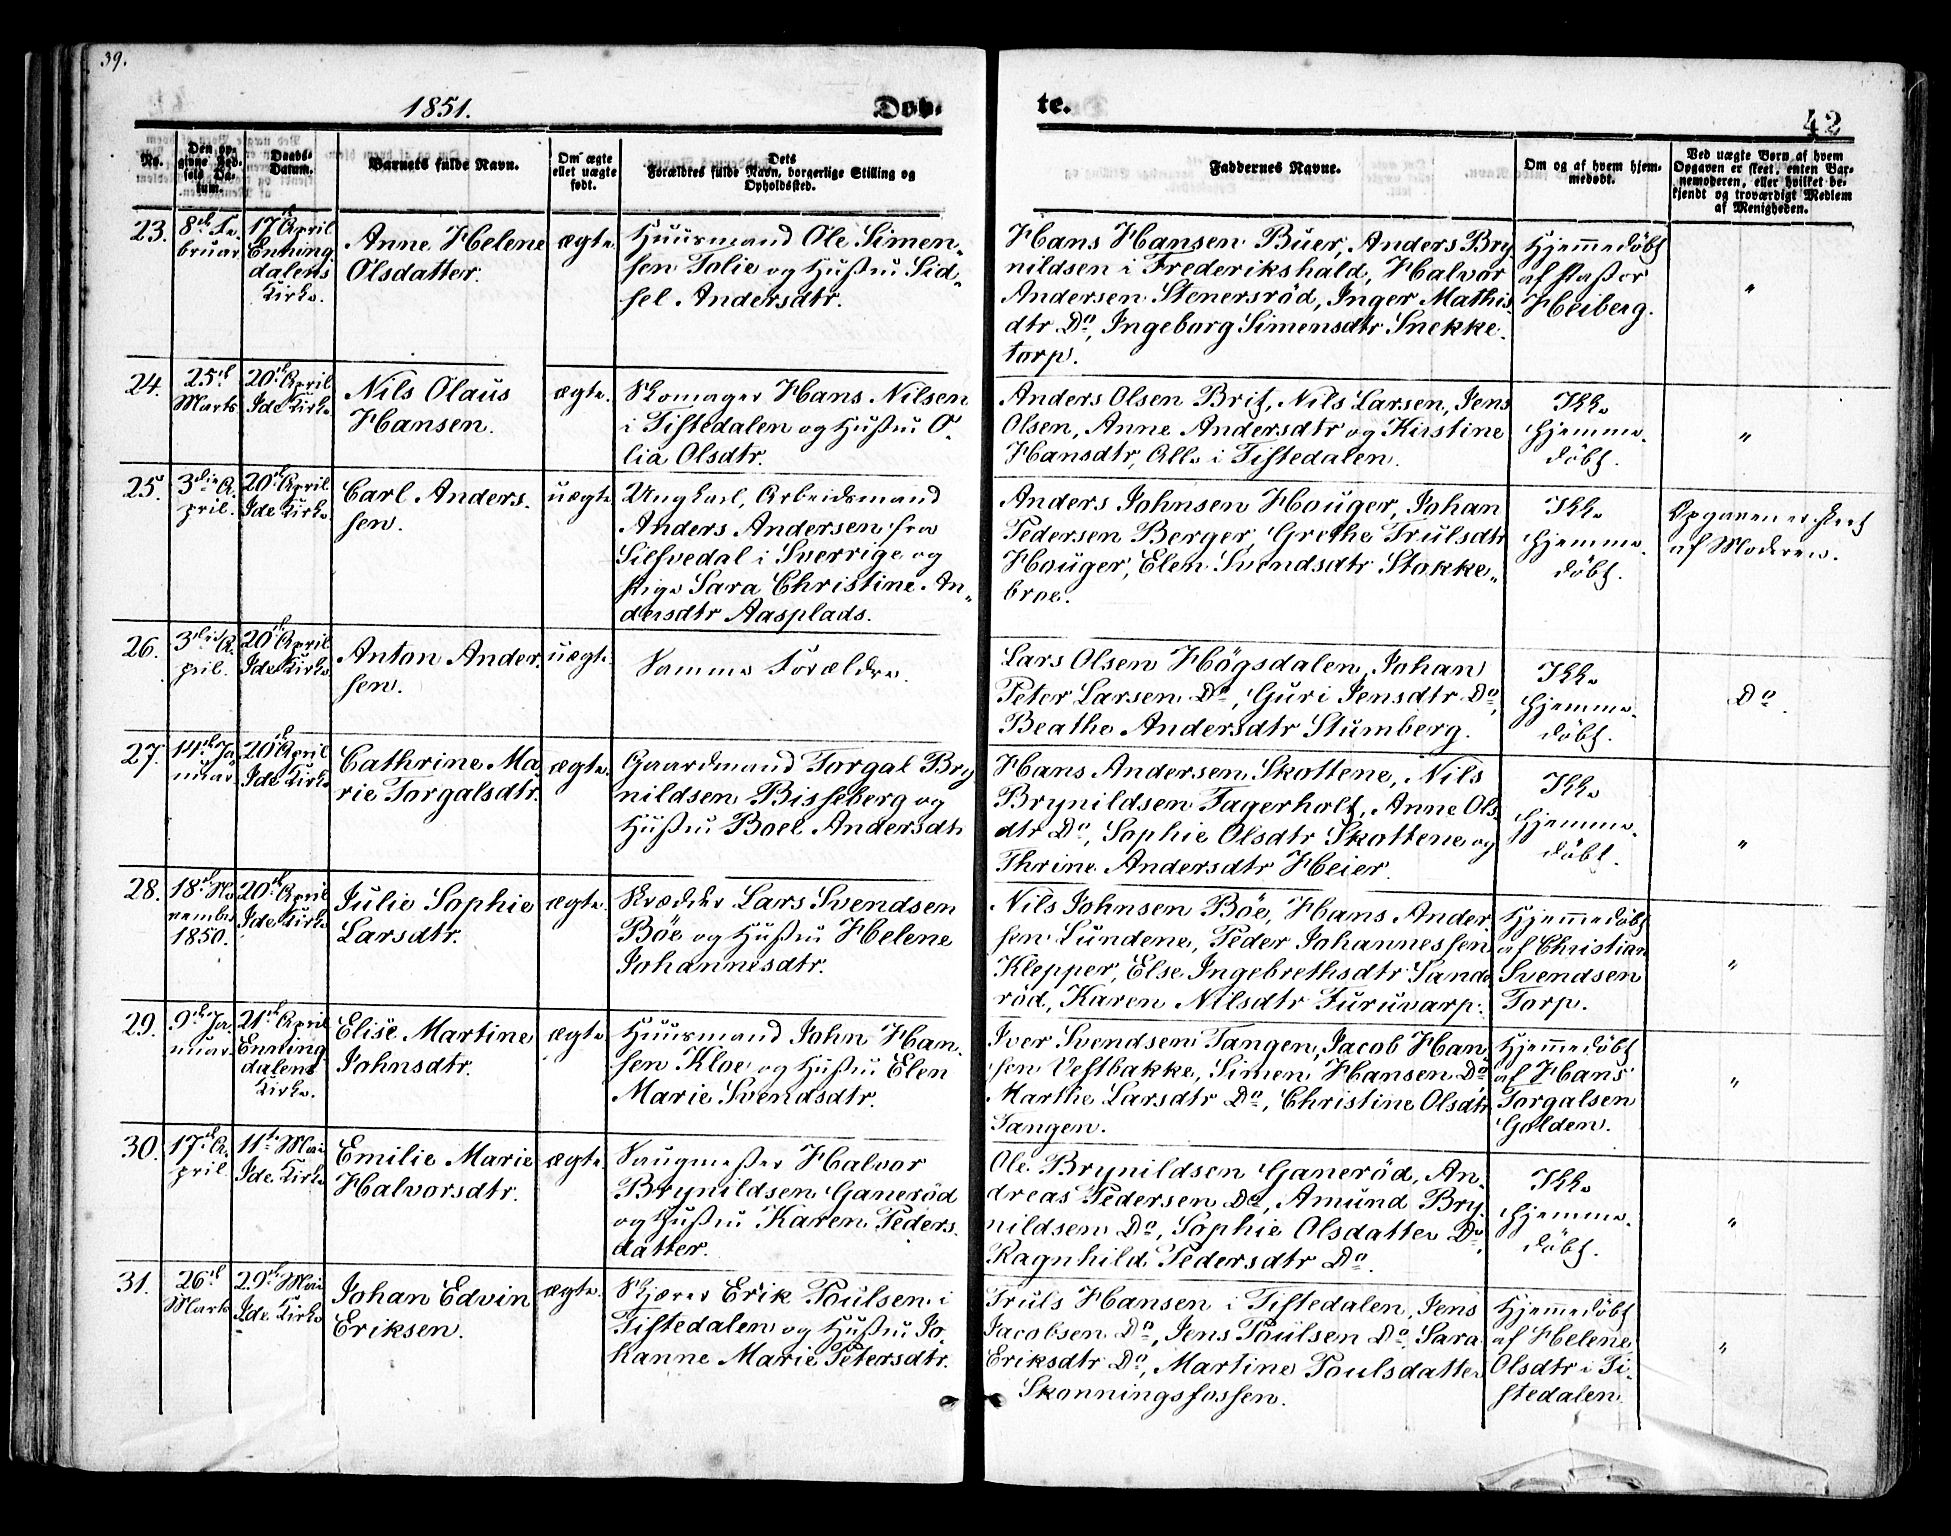 39.
1851.
Døb-
te.
42
No.
Den op-
givne Fød-
sels Da-
tum.
Daabs-
Datum.
Barnets fulde Navn.
Om ægte
eller uægte
født.
Dets
Forældres fulde Navn, borgerlige Stilling og
Opholdssted.
Faddernes Navne.
Om og af hvem hjem-
medøbt.
Ved uægte Børn af hvem
Opgaven er skeet, enten Bar-
nemoderen, eller hvilket be-
kjendt og troværdigt Medlem
af Menigheden.
23.
8de Fe
bruar
17 April
Enning
dalens
Kirke.
Anne Helene
Olsdatter.
ægte
Huusmand Ole Simen-
sen Folie og Hustru Sid-
sel Andersdtr.
Hans Hansen Buer, Anders Bry
nildsen i Frederikshald, Halvor
Andersen Stenersröd, Inger Mathis
dtr Do, Ingeborg Simensdtr Snekke-
torp.
Hjemmedøbt
af Pastor
Heiberg.
"
24.
25de
Marts
20de April
Ide Kirke
Nils Olaus
Hansen.
ægte.
Skomager Hans Nilsen
i Tistedalen og Hustru O-
lia Olsdtr.
Anders Olsen Brit, Nils Larsen, Jens
Olsen, Anne Andersdtr og Kirstine
Hansdtr, Alle i Tistedalen.
Ikke
hjemme-
døbt.
"
25.
3die A-
pril.
20de April
Ide Kirke
Carl Anders-
sen.
uægte
Ungkarl, Arbeidsmand
Anders Andersen fra
Silfvedal i Sverrige og
Pige Sara Christine An-
dersdtr Aasplads.
Anders Johnsen Houger, Johan
Pedersen Berger, Grethe Trulsdtr
Houger, Elen Svendsdtr Stokke-
broe.
Ikke
hjemme-
døbt.
Opgaven er skeet
af Moderen.
26.
3die A-
pril.
20de April
Ide Kirke
Anton Ander-
sen.
uægte
Samme Forældre.
Lars Olsen Högsdalen, Johan
Peter Larsen Do, Guri Jensdtr Do,
Beathe Andersdtr Stumberg.
Ikke
hjemme-
døbt.
Do.
27.
14de Ja
nuar
20de April
Ide Kirke
Cathrine Ma-
rie Torgalsdtr.
ægte.
Gaardmand Torgal Bry
nildsen Bisseberg og
Hustru Boel Andersdtr
Hans Andersen Skottene, Nils
Brynildsen Fagerholt, Anne Ols-
dtr Do, Sophie Olsdtr Skottene og
Thrine Andersdtr Heier.
Ikke
hjemme-
døbt.
"
28.
18de No
vember
1850.
20de April
Ide Kirke
Julie Sophie
Larsdtr.
ægte.
Skrædder Lars Svendsen
Böe og Hustru Helene
Johannesdtr.
Nils Johnsen Böe, Hans Ander-
sen Lundene, Peder Johannessen
Klepper, Else Ingebrethsdtr Sande
röd, Karen Nilsdtr Furuvarp.
Hjemmedøbt
af Christian
Svendsen
Torp.
"
29.
9de Ja-
nuar
21de April
Enning
dalens
Kirke.
Elise Martine
Johnsdtr.
ægte
Huusmand John Han-
sen Kloe og Hustru Elen
Marie Svendsdtr.
Iver Svendsen Tangen, Jacob Han-
sen Vestbakke, Simen Hansen Do
Marthe Larsdtr Do, Christine Olsdtr
Tangen.
Hjemmedøbt
af Hans
Torgalsen
Golden.
"
30.
17de A-
pril
11te Mai
Ide Kirke
Emilie Marie
Halvorsdtr.
ægte
Saugmester Halvor
Brynildsen Ganeröd
og Hustru Karen Peders-
datter.
Ole Brynildsen Ganeröd, An-
dreas Pedersen Do, Amund Bry-
nildsen Do, Sophie Olsdatter Do,
Ragnhild Pedersdtr Do.
Ikke
hjemme-
døbt.
"
31.
26de
Marts
29de Mai
Ide Kirke
Johan Edvin
Eriksen.
ægte.
Skjærer Erik Poulsen i
Tistedalen og Hustru Jo-
hanne Marie Petersdtr.
Truls Hansen i Tistedalen, Jens
Jacobsen Do, Jens Poulsen Do, Sara
Eriksdtr Do, Martine Poulsdatter
Skonningsfossen.
Hjemmedøbt
af Helene
Olsdtr i Ti-
stedalen
"